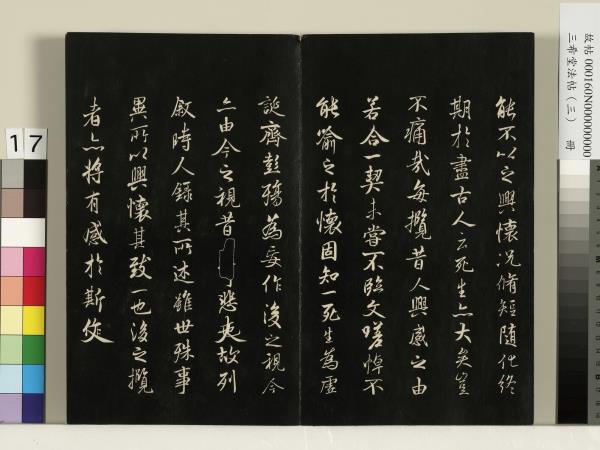 故帖 000160N000000000
三希堂法帖（三） 冊
能不以之興懷況脩短隨化終
期於盡古人云死生亦大矣豈
不痛哉每攬昔人興感之由
若合一契未嘗不臨文嗟悼不
能喻之於懷固知一死生為虛
誕齊彭殤為妄作後之視今
亦由今之視昔悲夫故列
敘時人錄其所述雖世殊事
異所以興懷其致一也後之攬
者亦將有感於斯文
17